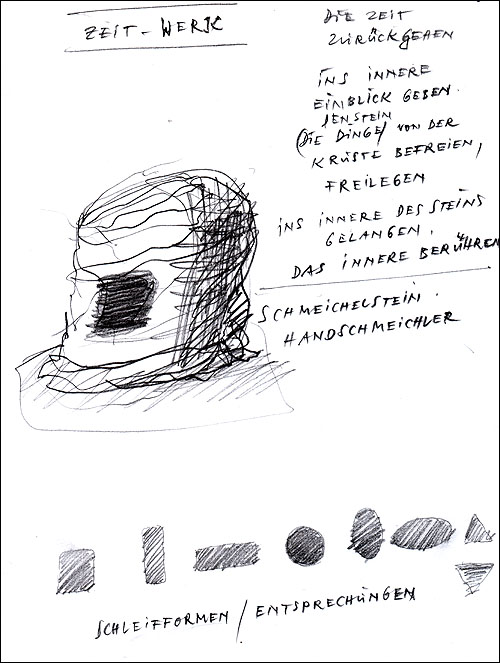 ZEIT-WERK
DIE ZEIT
ZURÜCKGEHEN
INS INNERE
EINBLICK GEBEN.
DEN STEIN
(DIE DINGE) VON DER
KRUSTE BEFREIEN,
FREILEGEN
INS INNERE DES STEINS
GELANGEN.
DAS INNERE BERÜHREN
SCHMEICHELSTEIN.
HANDSCHMEICHLER
SCHLEIFFORMEN / ENTSPRECHUNGEN